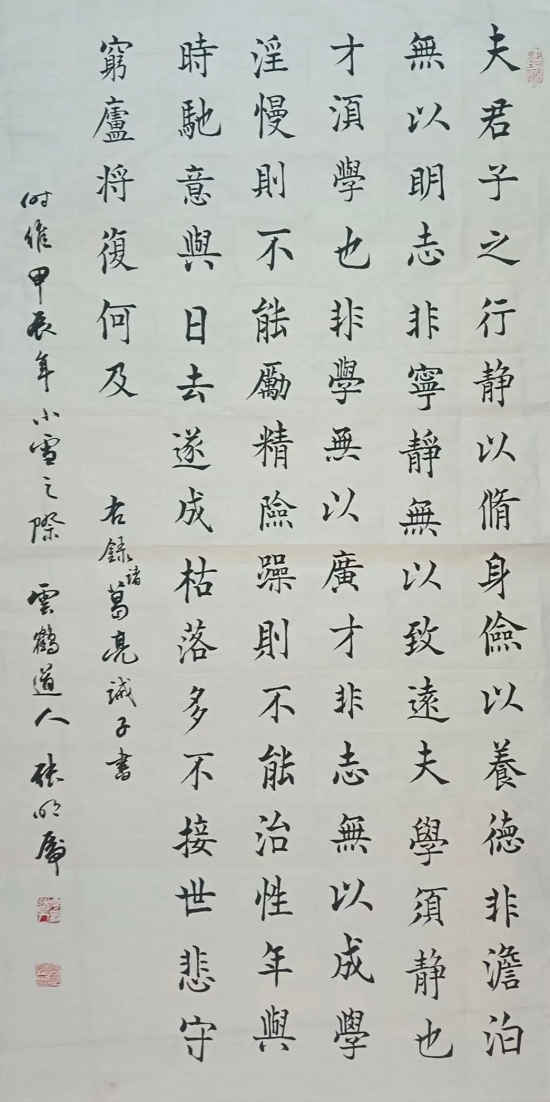 夫君子之行静以脩身儉以養德非澹泊
無以明志非寧靜無以致遠夫學須静也
才湏學也非學無以廣才非志無以成學
淫慢則不能勵精險躁則不能治性年與
時馳意與日去遂成枯落多不接世悲守
窮廬将復何及
右録諸葛亮誡子書
时維甲辰年小雪之際 雲鶴道人 張明